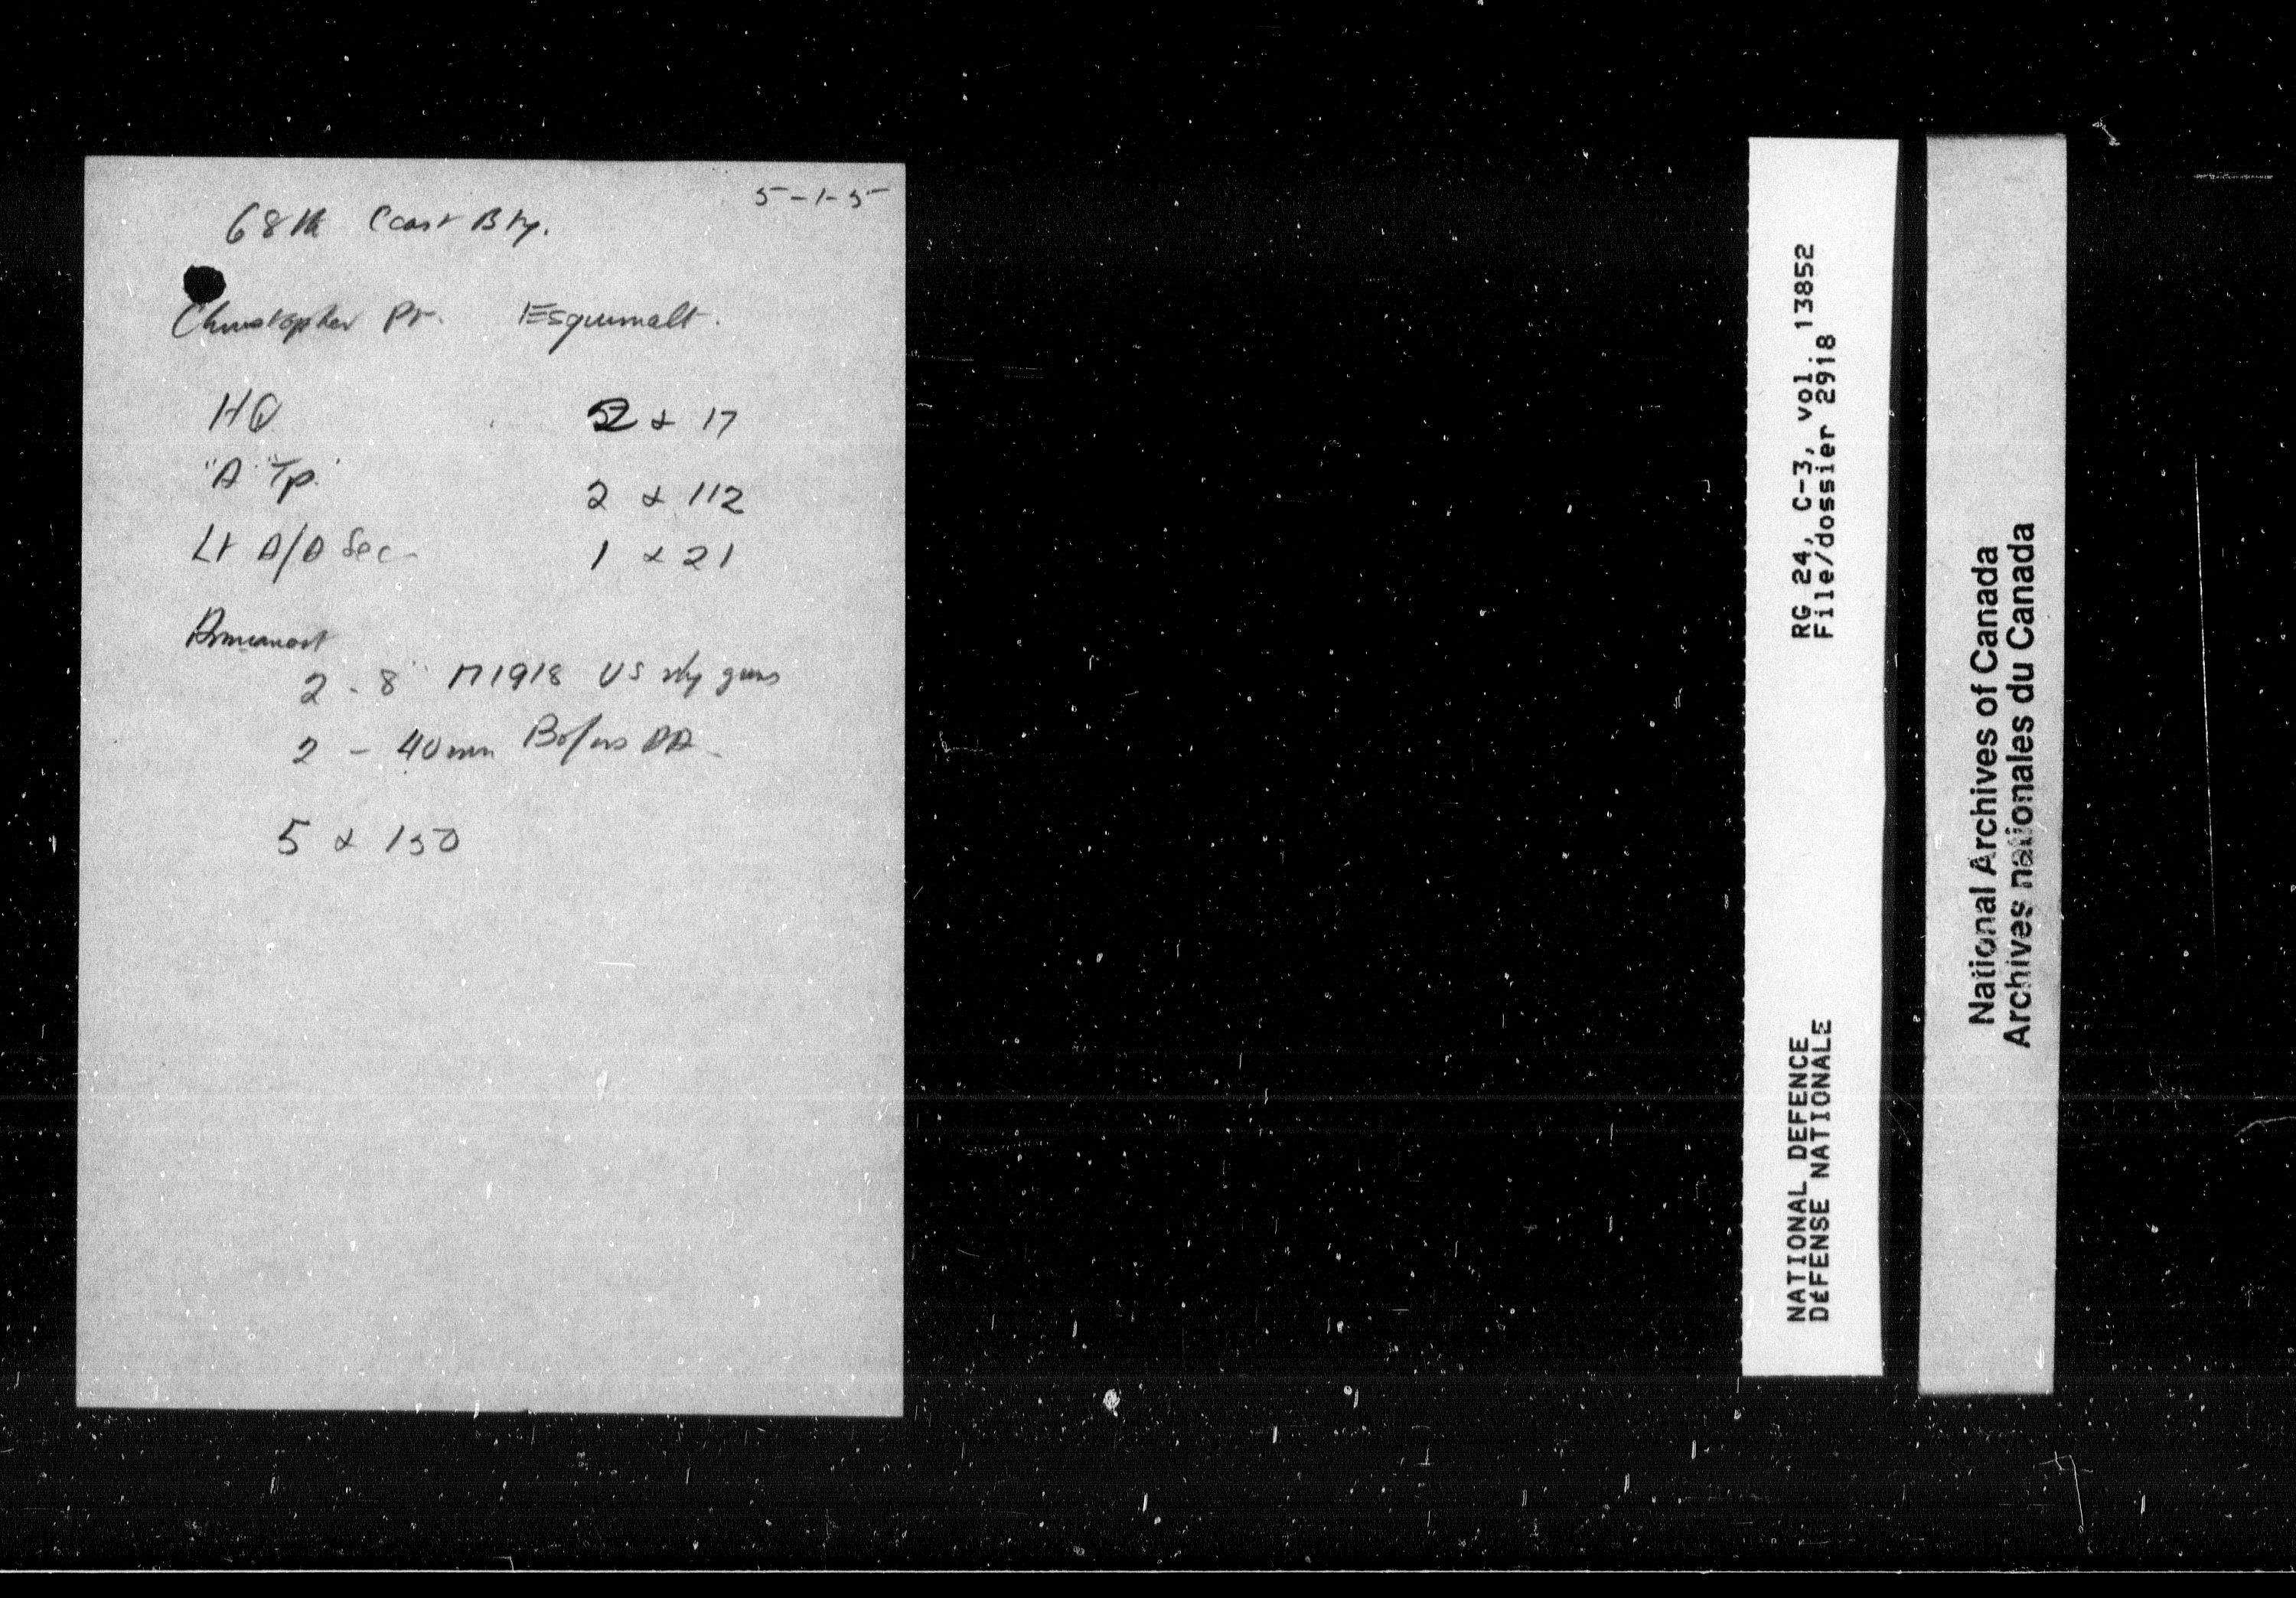 5-1-5
68th Coast Bty.
Christopher Pt. Esquimalt.
HQ 2 & 17
"A" Tp. 2 & 112
Lt A/A Sec 1 & 21
Armament
2 - 8" M1918 US rly guns
2 - 40mm Bofors AA
5 & 150
RG 24, C-3, vol. 13852
File/dossier 2918
NATIONAL DEFENCE
DÉFENSE NATIONALE
National Archives of Canada
Archives nationales du Canada